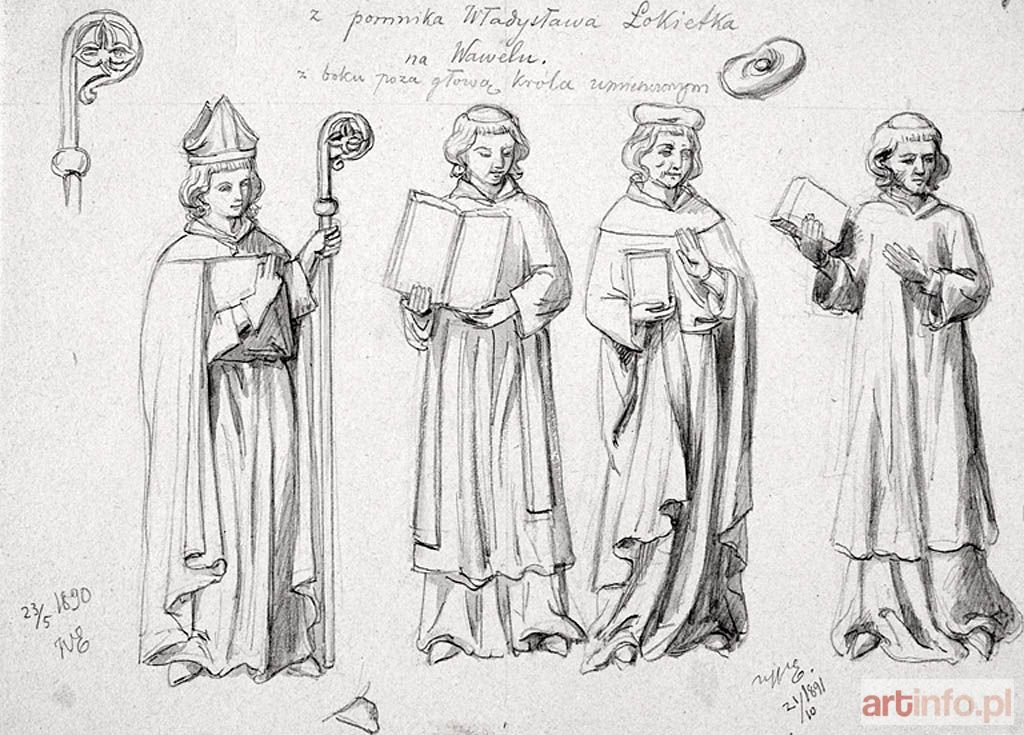 z pomnika Władysława Łokietka
na Wawelu.
z boku poza głową króla umieszczonym
23/5 1890
WE
21/10 1891
artinfo.pl